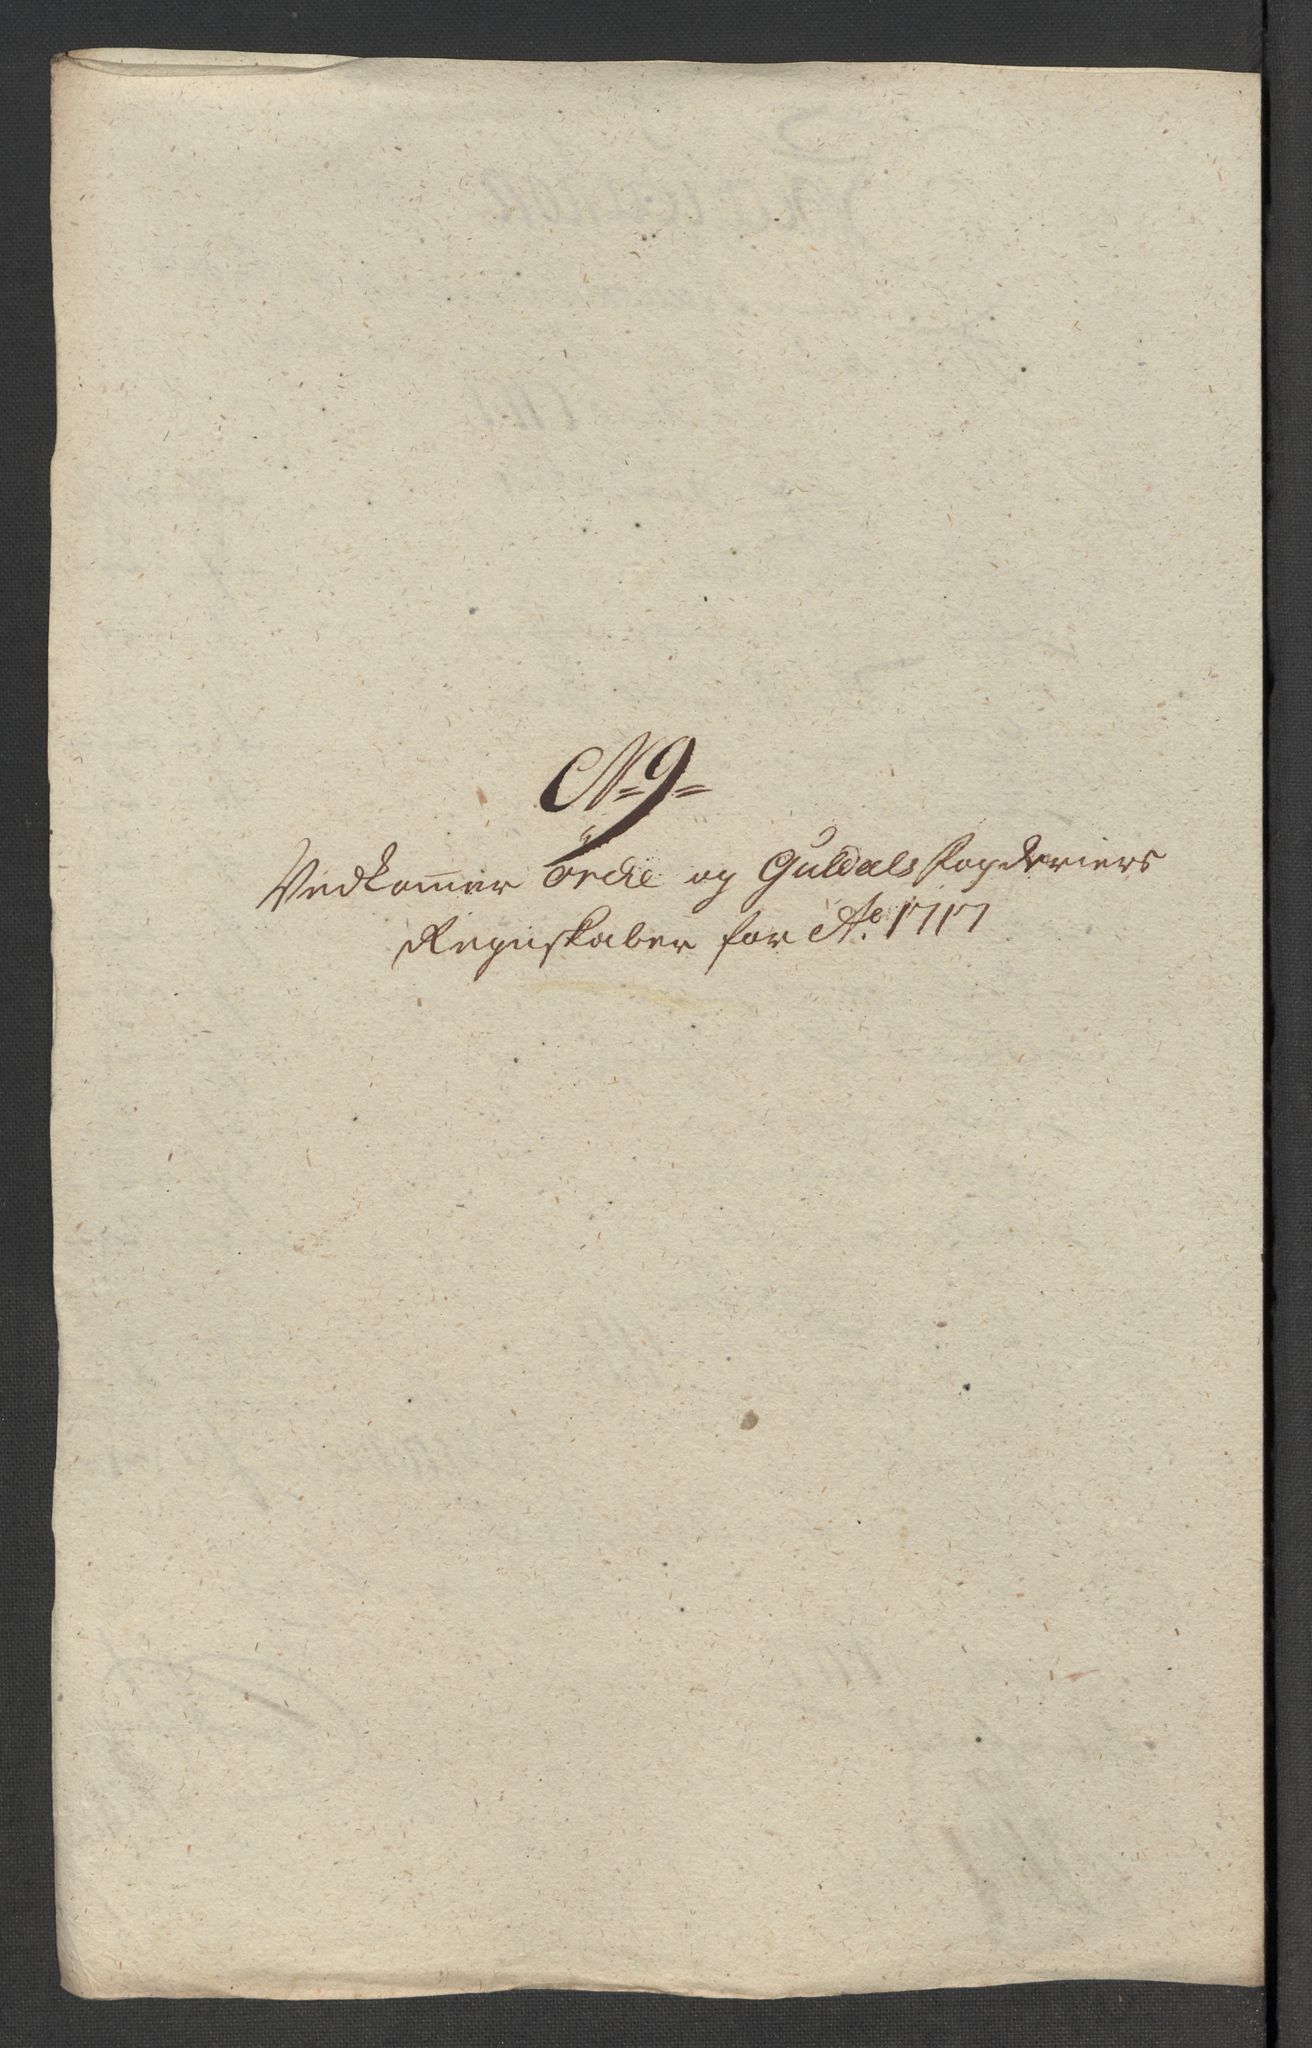 No 9
Vedkom̄er Örcke og Guldals fogderiers
Regnskaber for Ao. 1717